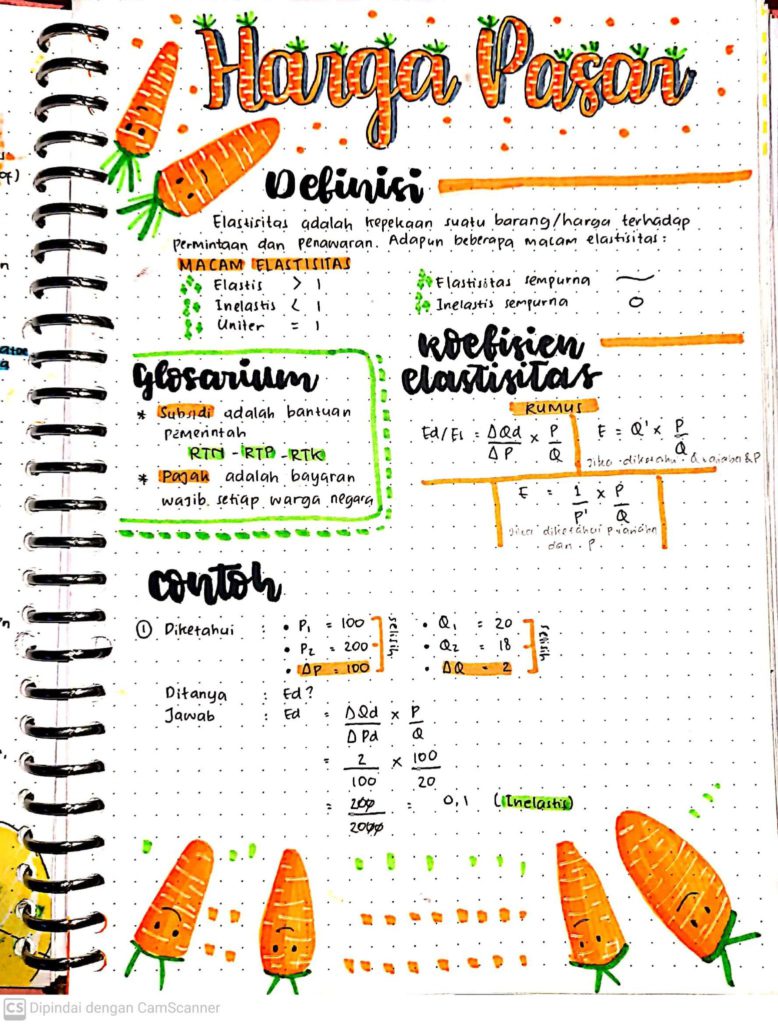 Harga Pasar
Definisi
Elastisitas adalah kepekaan suatu barang/harga terhadap
permintaan dan penawaran. Adapun beberapa macam elastisitas :
MACAM ELASTISITAS
Elastis > 1
Inelastis < 1
Uniter = 1
Elastisitas sempurna ~
Inelastis sempurna 0
Glosarium
* Subsidi adalah bantuan
pemerintah
RTM - RTP - RTK
* Pajak adalah bayaran
wajib setiap warga negara
Koefisien
elastisitas
RUMUS
Ed/Es = ΔQd/ΔP × P/Q
E = Q' × P/Q
Jika diketahui Q &P
E = 1/P' × P/Q
Jika diketahui P
dan P.
Contoh
① Diketahui : • P1 = 100
• P2 = 200
• ΔP = 100
selisih
• Q1 = 20
• Q2 = 18
• ΔQ = 2
selisih
Ditanya : Ed ?
Jawab : Ed = ΔQd/ΔPd × P/Q
= 2/100 × 100/20
= 200/2000 = 0,1 (Inelastis)
CS Dipindai dengan CamScanner